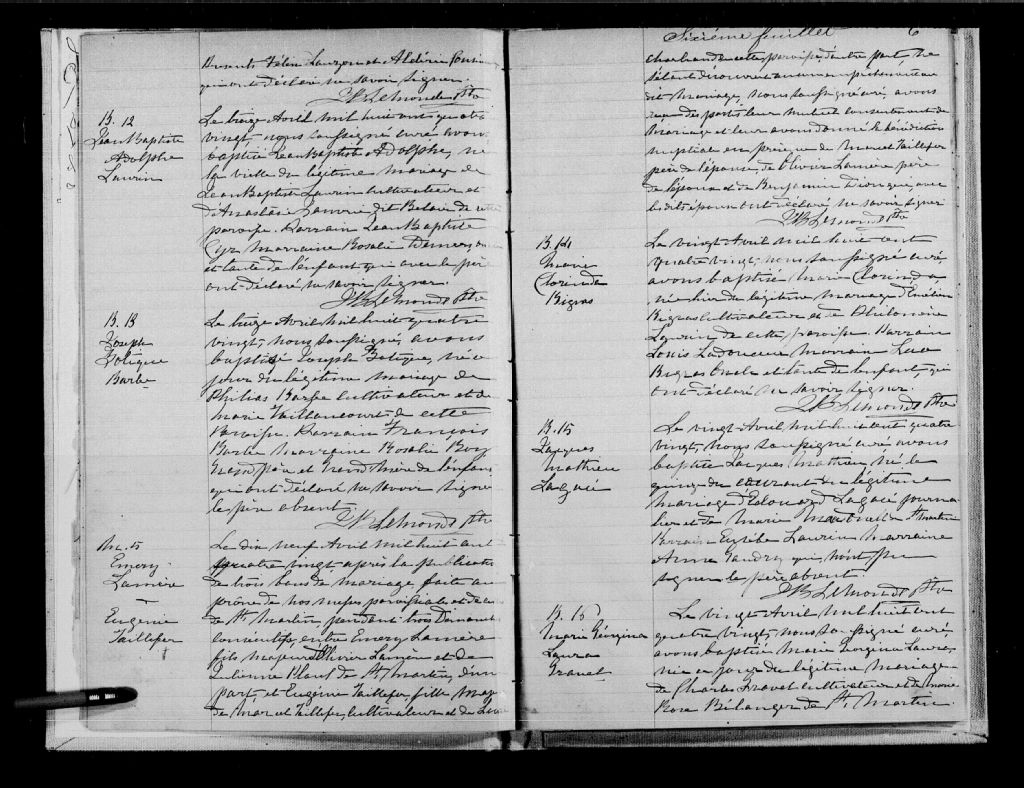 absent Félix Lauzon et Aldéric
qui ont déclaré ne savoir signer.
JB Lemonde Ptre
B. 12
Jean Baptiste
Adolphe
Laurin
Le treize Avril mil huit cent quatre
vingt, nous soussigné curé avons
baptisé Jean Baptiste Adolphe, né
la veille du légitime mariage de
Jean Baptiste Laurin cultivateur et
d'Anastasie dit de cette
paroisse. Parrain Jean Baptiste
Cyr Marraine Rosalie Demers
et tante de l'enfant qui avec le père
ont déclaré ne savoir signer.
JB Lemonde Ptre
B. 13
Joseph
Zotique
Barbe
Le treize Avril mil huit quatre
vingt, nous soussigné, avons
baptisé Joseph Zotique, né ce
jour du légitime mariage de
Philias Barbe cultivateur et de
Marie Vaillancourt de cette
Paroisse. Parrain François
Barbe Marraine Rosalie Roy
Grand père et Grand Mère de l'enfant
qui ont déclaré ne savoir signer
le père absent.
JB Lemonde Ptre
M. 5
Emery
Lamère
Eugénie
Taillefer
Le dix neuf Avril mil huit cent
quatre vingt après la publication
de trois bans de mariage faite au
prône de nos messes paroissiales et de celles
de St. Martin, pendant trois Dimanches
consécutifs, entre Emery Lamère
fils majeur d'Olivier Lamère et de
de St. Martin, d'une
part, et Eugénie Taillefer, fille
de Marcel Taillefer, cultivateur et de
Sixième feuillet 6
de cette paroisse, d'autre part, ne
s'étant découvert aucun empêchement au
dit mariage, nous soussigné curé, avons
reçu des parties leur mutuel consentement de
mariage et leur avons donné la bénédiction
nuptiale en présence de Marcel Taillefer
père de l'épouse, de Olivier Lamère père
de l'époux et de Benjamin Dionque, avec
les dits époux ont déclaré ne savoir signer
JB Lemonde Ptre
B. 14
Marie
Clorinda
Bigras
Le vingt Avril mil huit cent
quatre vingt, nous soussigné curé,
avons baptisé Marie Clorinda,
née hier du légitime mariage d'
Bigras cultivateur et de Philomène
Laurin de cette paroisse. Parrain
Louis Ladouceur Marraine
Bigras oncle et tante de l'enfant qui
ont déclaré ne savoir signer.
JB Lemonde Ptre
B. 15
Jacques
Mathieu
Lagacé
Le vingt Avril mil huit cent quatre
vingt, nous soussigné curé, avons
baptisé Jacques Mathieu né le
quinze du courant du légitime
mariage d'Edouard Lagacé journa-
lier et de Marie St. Martin
Parrain Laurin Marraine
qui n'ont pu
signer le père absent.
JB Lemonde Ptre
B. 16
Marie Georgina
Laura
Gravel
Le vingt Avril mil huit cent
quatre vingt, nous soussigné curé,
avons baptisé Marie Georgina Laura,
née ce jour du légitime mariage
de Charles Gravel cultivateur et de Marie
Rose Bélanger de St. Martin.